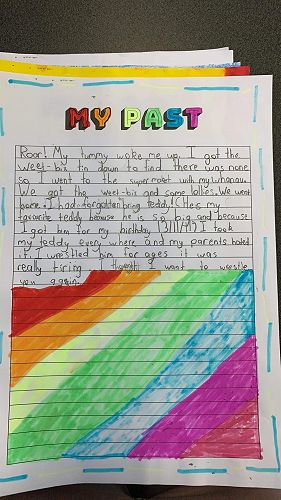 MY PAST
Roar! My tummy woke me up. I got the
weet-bix tin down to find there was none
so I went to the super market with my whanau.
We got the weet-bix and some lollies. We went
home. I had forgotten bring teddy! (He's my
favourite teddy because he is so big and because
I got him for my birthday, I took
my teddy every where and my parents hated
it. I wrestled him for ages it was
really tiring I thought I want to wrestle
you again.